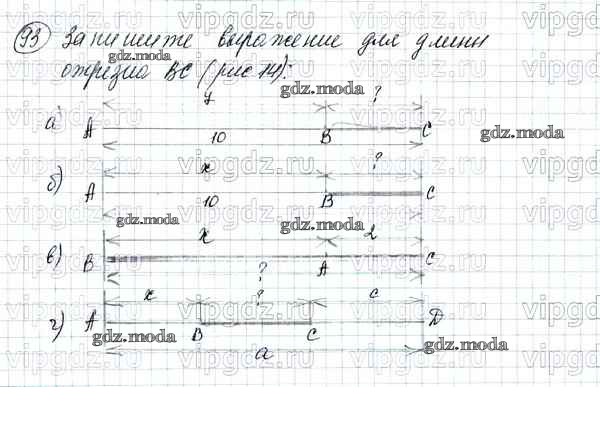 93 Запишите выражение для длины
отрезка BC (рис 14):
7 ?
а) A 10 B C
x ?
б) A 10 B C
x 2
в) B A C
?
x ? c
г) A B C D
a
gdz.moda
vipgdz.ru